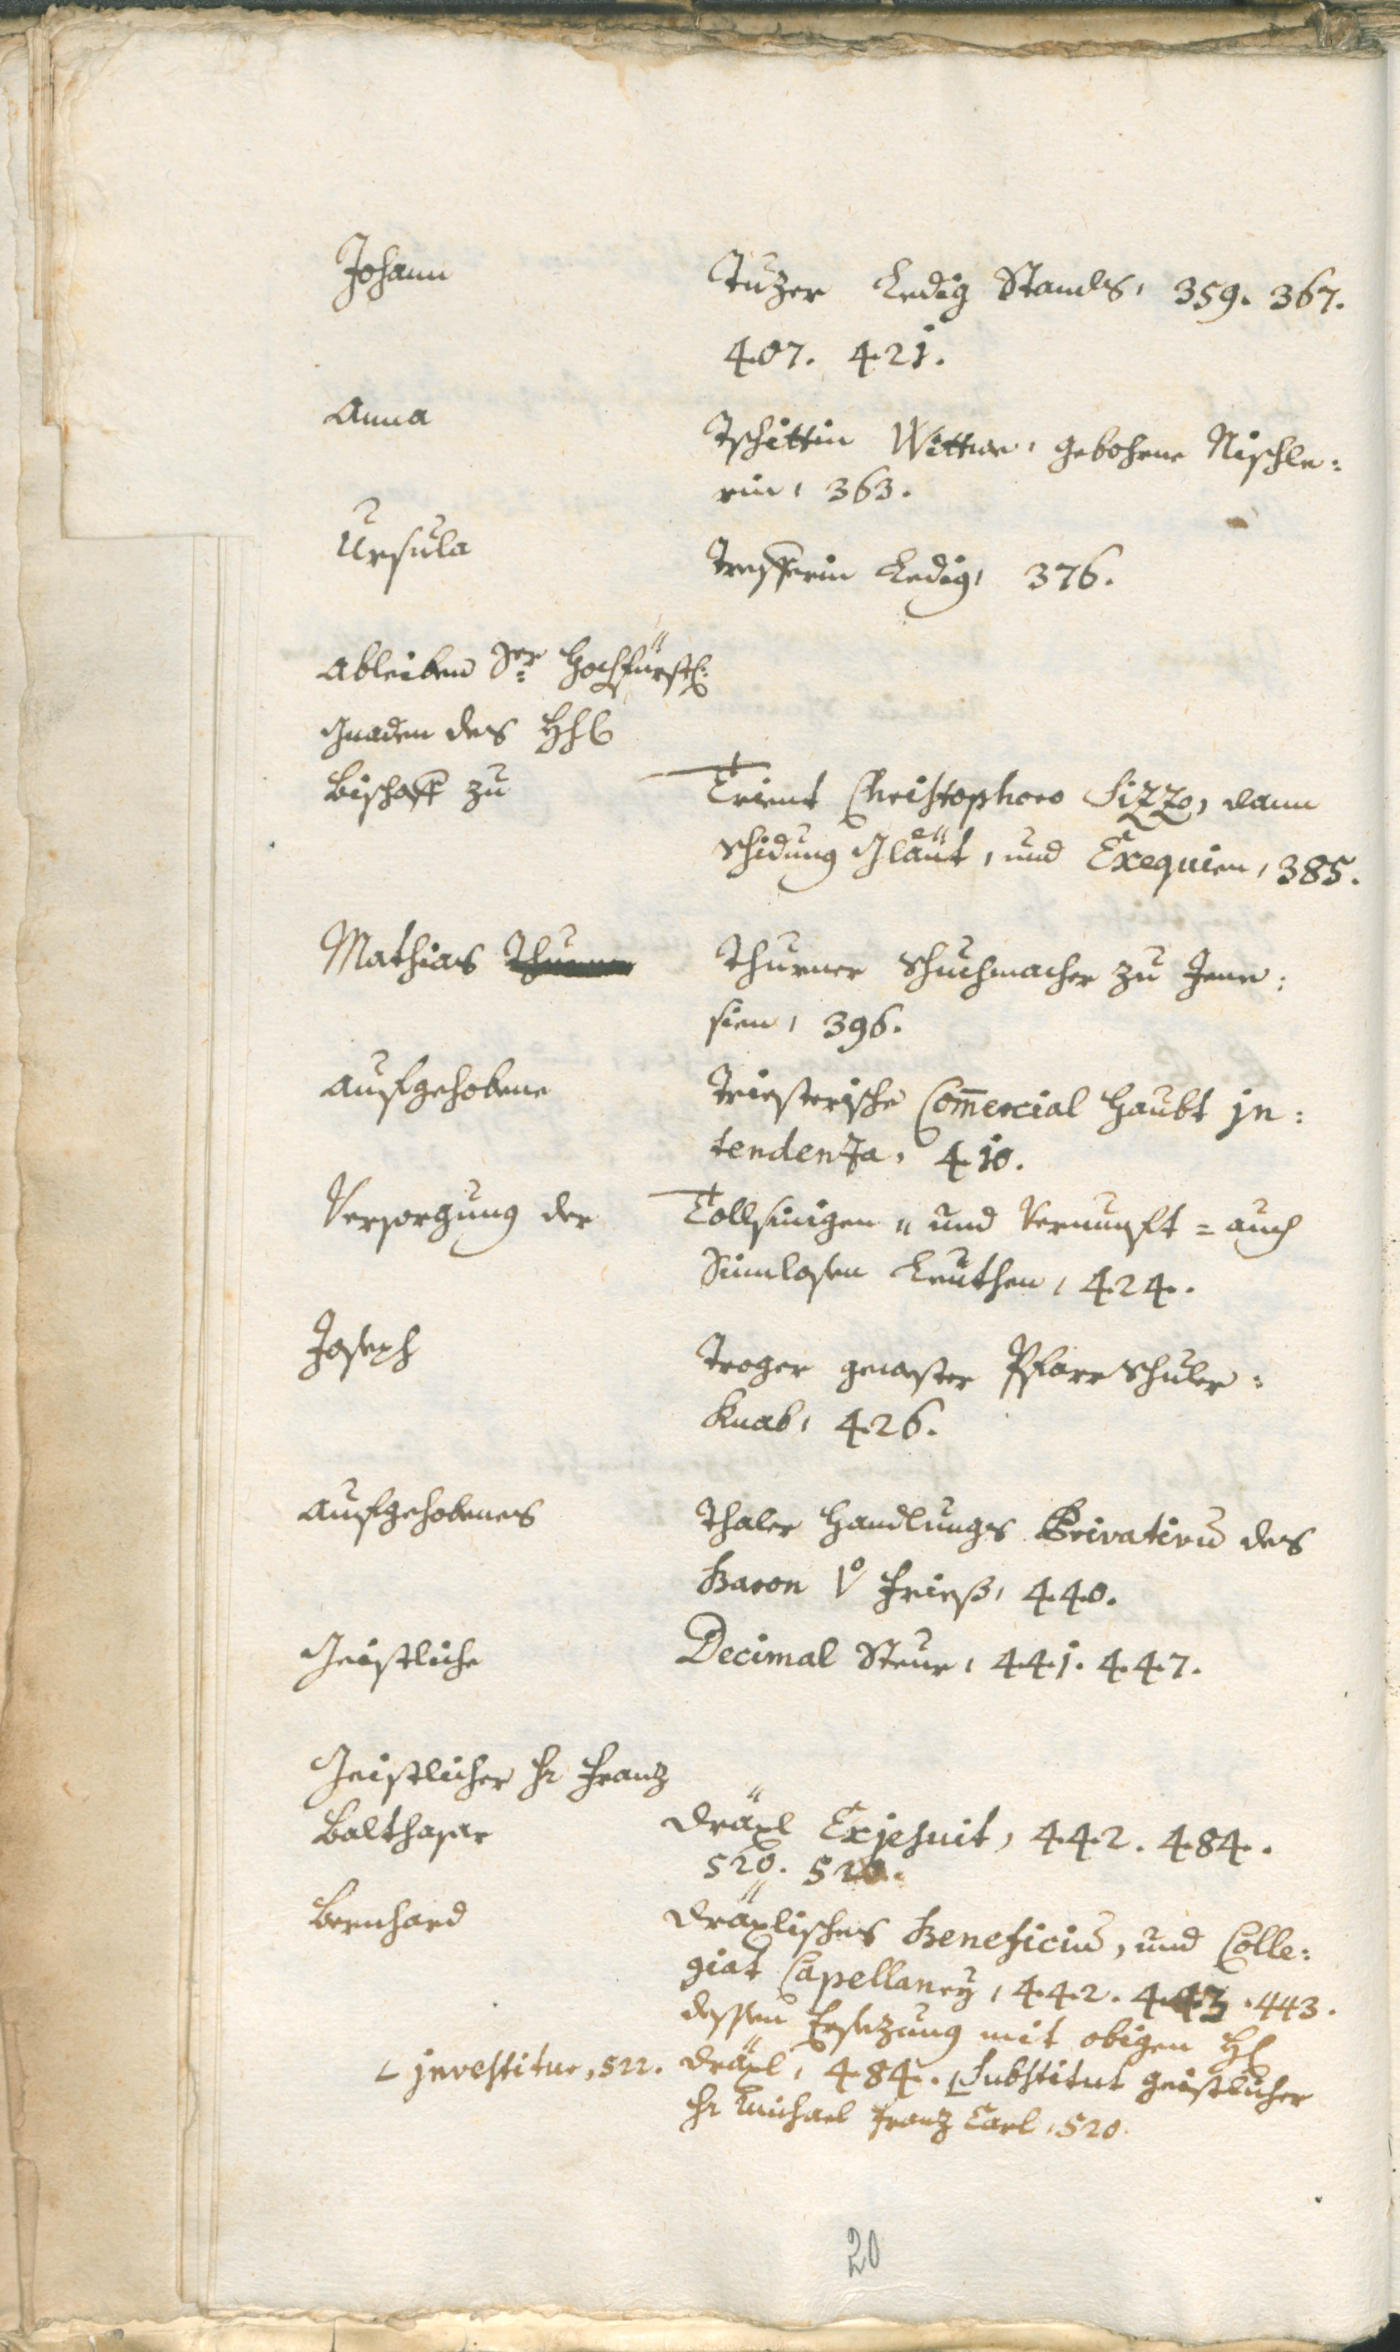 Johann Tuzer Ledig Stands, 359. 367.
407. 421.
Anna Tschittin Wittwe, gebohrne Nischle=
rin, 363.
Ursula Trefferin Ledig, 376.
Ableiben Sr. Hochfürstl:
Gnaden des H H
Bischoff zu Trient Christophoro Sizzo, dann
Schidung Gläut, und Exequien, 385.
Mathias Thurner Schuchmacher zu Jene=
sien, 396.
Aufgehobene Triesterische Com̄ercial Haubt jn=
tendenza, 410.
Versorgung der Tollsinigen „ und Vernunft = auch
Sinnlosen Leuthen, 424.
Joseph Troger gewester Pfarrschuler=
Knab, 426.
Aufgehobenes Thaler Handlungs Privativū des
Baron Vo Friess, 440.
Geistliche Decimal Steur, 441. 447.
Geistlicher Hr Franz
Balthasar Dräxl Exjesuit, 442. 484.
520. 520.
Bernhard Dräxlisches Beneficiū, und Colle=
giat Capellaney, 442. 443. 443.
dessen Ersezung mit obigen H
Dräxl, 484. Substitut geistlicher
jnvestitur, 522.
Hr Michael Franz Carl, 520.
20